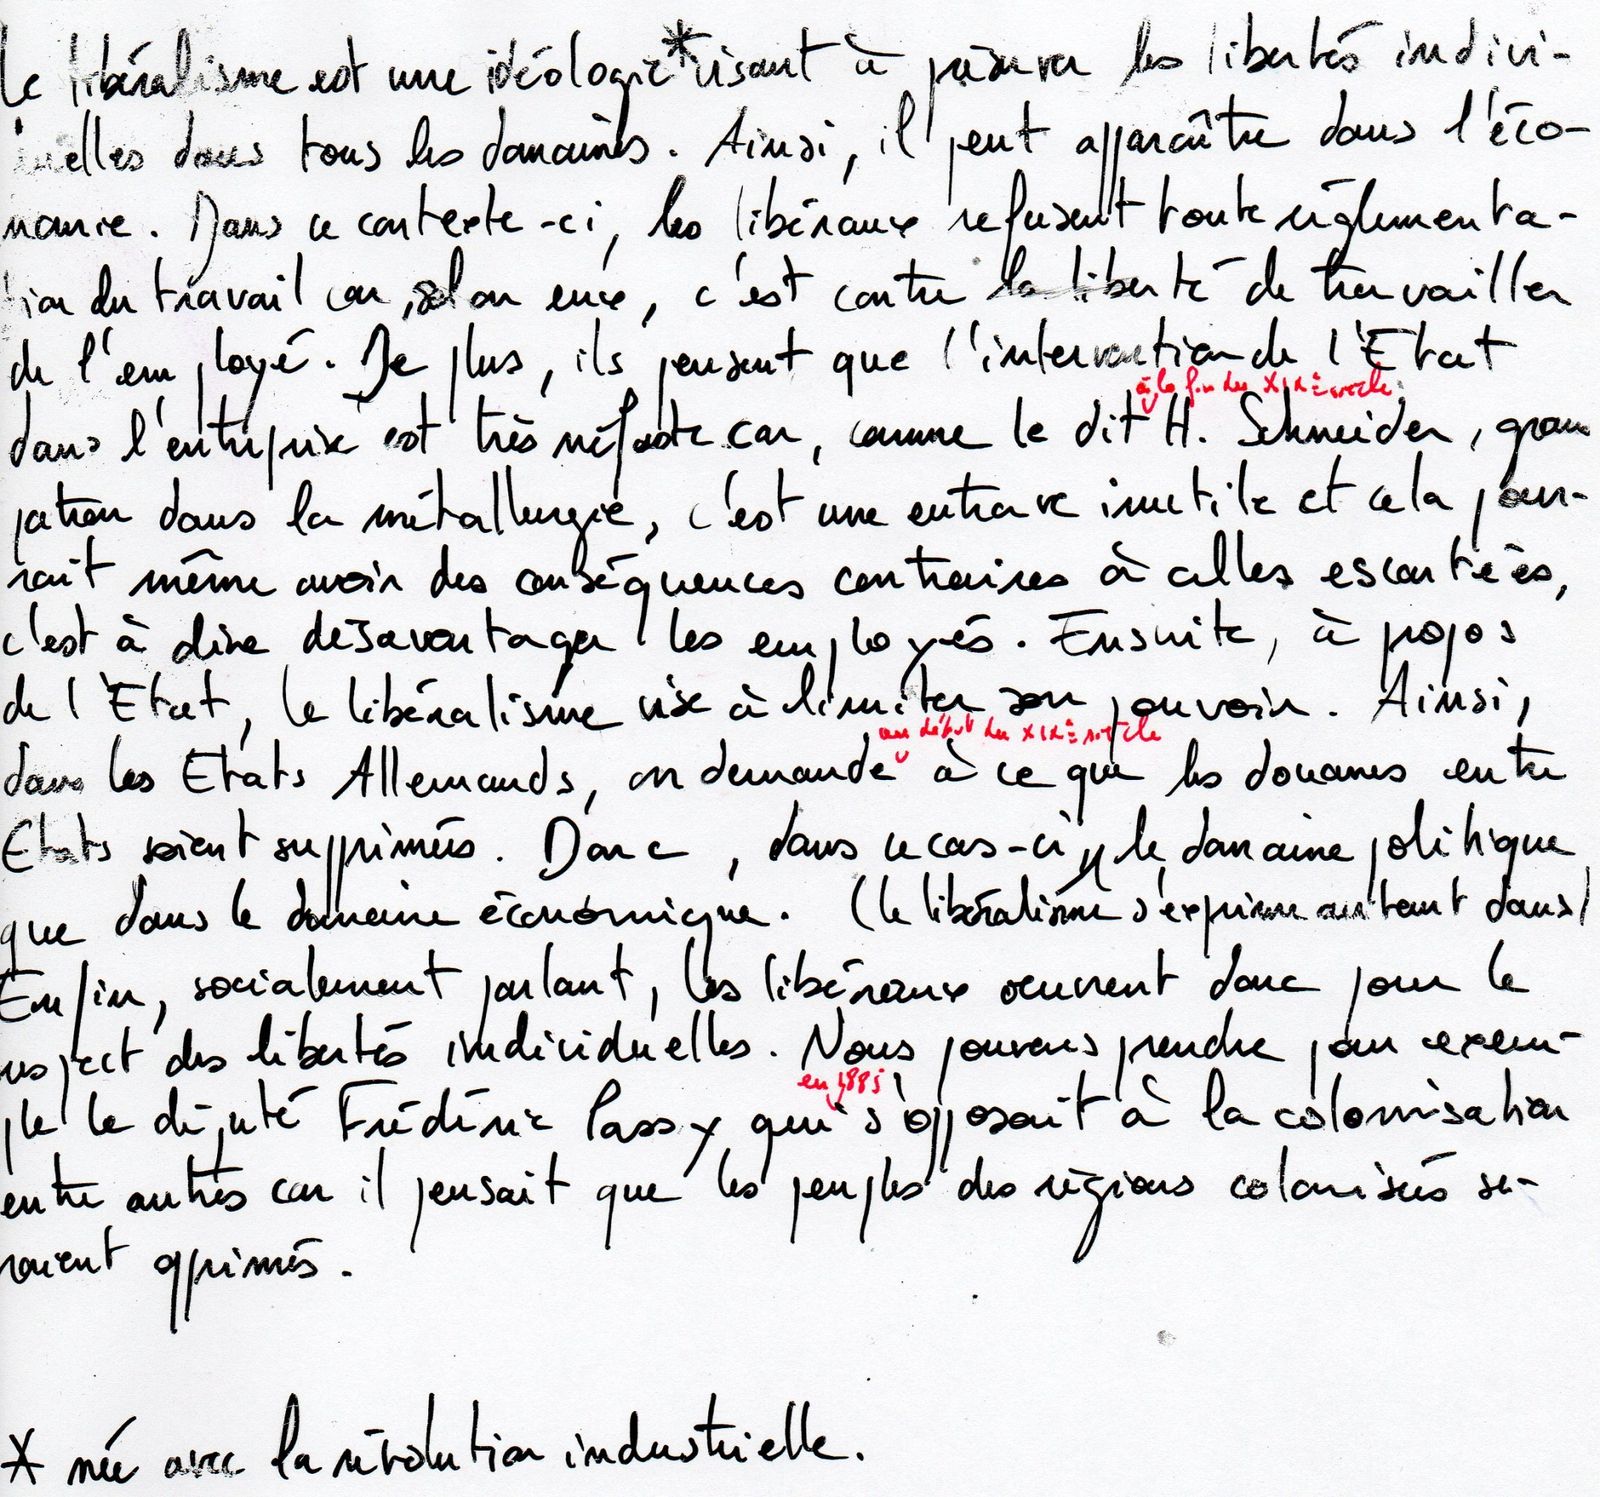 Le libéralisme est une idéologie* visant à préserver les libertés indivi-
duelles dans tous les domaines. Ainsi, il peut apparaître dans l'éco-
nomie. Dans ce contexte-ci, les libéraux refusent toute réglementa-
tion du travail car, selon eux, c'est contre la liberté de travailler
de l'employé. De plus, ils pensent que l'intervention de l'Etat
à la fin du XIXè siècle
dans l'entreprise est très néfaste car, comme le dit H. Schneider, grand
patron dans la métallurgie, c'est une entrave inutile et cela pour-
rait même avoir des conséquences contraires à celles escomptées,
c'est à dire désavantager les employés. Ensuite, à propos
de l'Etat, le libéralisme vise à limiter son pouvoir. Ainsi,
au début du XIXè siècle
dans les Etats Allemands, on demande à ce que les douanes entre
Etats soient supprimées. Donc, dans ce cas-ci, le domaine politique
que dans le domaine économique. (le libéralisme s'exprime autant dans)
Enfin, socialement parlant, les libéraux oeuvrent donc pour le
respect des libertés individuelles. Nous pouvons prendre pour exem-
en 1885
ple le député Frédéric Passy qui s'opposait à la colonisation
entre autres car il pensait que les peuples des régions colonisées se-
raient opprimés.
* née avec la révolution industrielle.